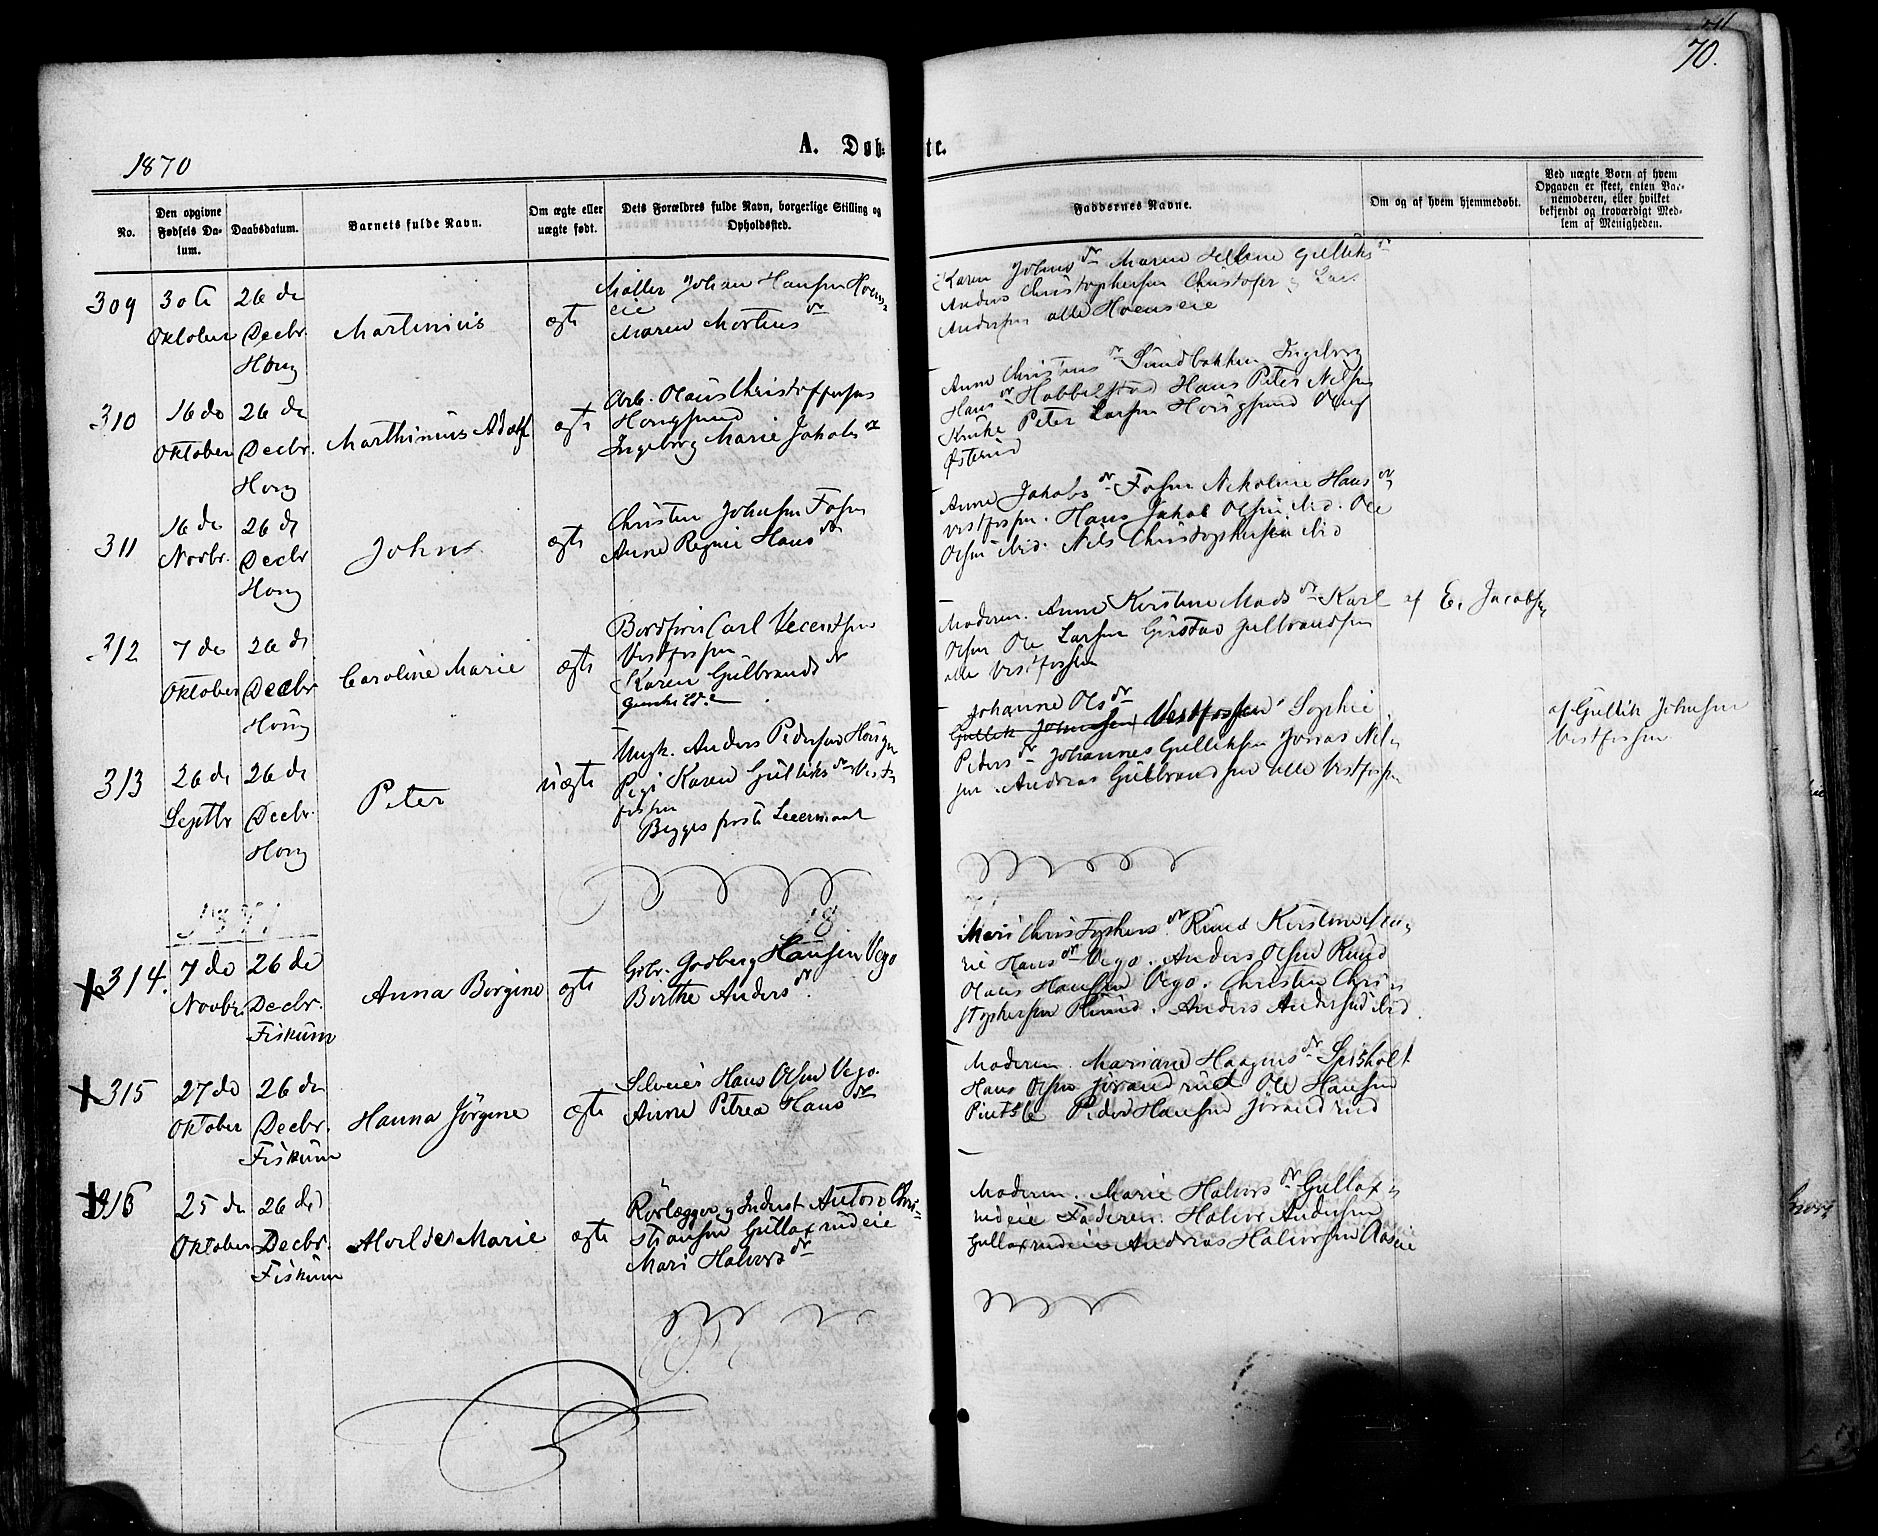 71
70.
1870
A. Døb- te.
No.
Den opgivne Fødsels Da-tum.
Daabsdatum.
Barnets fulde Navn.
Om ægte eller uægte født.
Dets Forældres fulde Navn, borgerlige Stilling og Opholdssted.
Faddernes Navne.
Om og af hvem hjemmedøbt.
Ved uægte Born af hvem Opgaven er skeet, enten Bar-nemoderen, eller hvilket bekjendt og troværdigt Med-lem af Menigheden.
309
30te Oktober
26 de Decbr. Houg
Martinius
ægte
Møller Johan Hansen Hoens-
eie
Maren Mortens dr
Karen Johns dr Maren Helene Gulliks dr
Anders Christophersen Christofer Lars
Andersen alle Hoenseie
310
16 de Oktober
26 de Decbr. Houg
Marthinius Adolf
ægte
Arb. Olaus Christoffersen
Hougsund
Ingeborg Marie Jakobs dr
Anne Christens dr Sundbakken Ingeborg
Hans dr Hobbelstad Hans Peter Nilsen
Kruke Peter Larsen Hougsund Oluf
Østerud
311
16 de Novbr.
26 de Decbr Houg
John
ægte
Christen Johnsen Fosen
Anne Regine Hans dr
Anne Jakobs dr Fosen Nikoline Hans dr
Vestfossen. Hans Jakob Olsen ibid. Ole
Olsen ibid. Nils Christophersen ibid
312
7 de Oktober
26 de Decbr Houg
Caroline Marie
ægte
Bordskriver Carl Vecentsen
Vestfossen
Karen Gulbrands dr
Moderen. Anne Kirstine Mads dr Karl
Olsen Ole Larsen Gustav Gulbrandsen
alle Vestfossen
af E. Jacobsen
313
26 de Septbr
26 de Decbr. Houg
Peter
uægte
Ungk. Anders Pedersen Houg
Pige Karen Gulliks dr Vest-
fossen
Begges første Leiermaal
Johanne Ols dr
Gullik Johnsen Vestfossen Sophie
Peders dr Johannes Gulliksen Jonas Nil-
sen. Andreas Gulbrandsen alle Vestfossen
af Gullik Johnsen
Vestfossen
1871
18
314.
7 de Novbr.
26 de Decbr. Fiskum
Anna Bergine
ægte
Gbr. Godberg Hansen Vego
Berthe Anders dr
Mari Christophers dr Ruud Kirstine Ma-
rie Hans dr Vego. Anders Olsen Ruud
Olaus Hansen Vego. Christen Chri-
stophersen Ruud. Anders Andersen ibid.
315
27 de Oktober
26 de Decbr. Fiskum
Hanna Jørgine
ægte
Selveier Hans Olsen Vego.
Anne Petrea Hans dr
Moderen. Mariane Haagens dr Seisholt
Hans Olsen Jørandrud Ole Hansen
Peder Hansen Jørandrud
316
25 de Oktober
26 de Decbr. Fiskum
Alvilde Marie
ægte
Rørlægger og Inderst Anton Chri-
stiansen Gullaxrudeie
Mari Halvors dr
Moderen. Marie Halvors dr Gullax-
rudeie Faderen. Halvor Andersen
Gullaxrudeie Andreas Halvorsen Aaseie